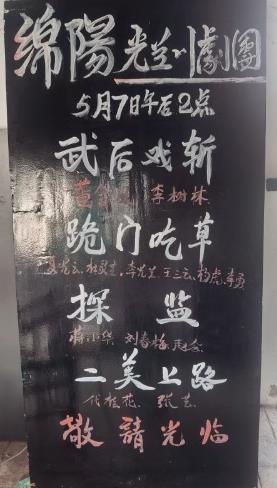 綿陽光兰川劇團
5月7日午后2点
武后戏斩
李树林
跪门吃草
李光兰 王三云 杨虎 李勇
探监
蒋小华 刘春梅
二美上路
代桂花 张艺
敬請光临